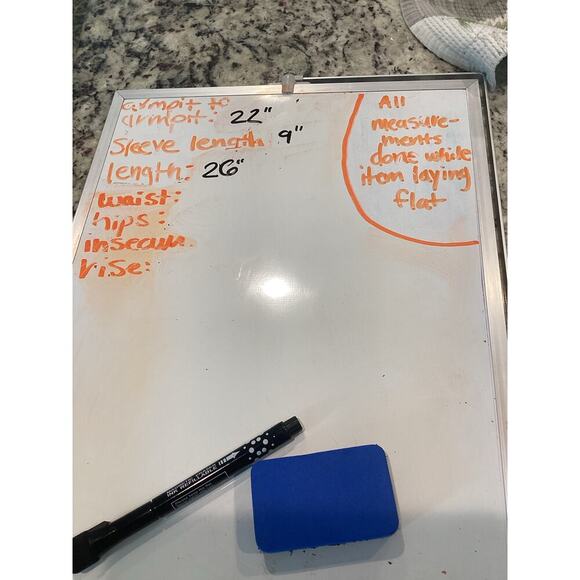 armpit to
armpit: 22"
Sleeve length: 9"
length: 26"
waist:
hips:
inseam:
rise:
All
measure-
ments
done while
item laying
flat
INK REFILLABLE